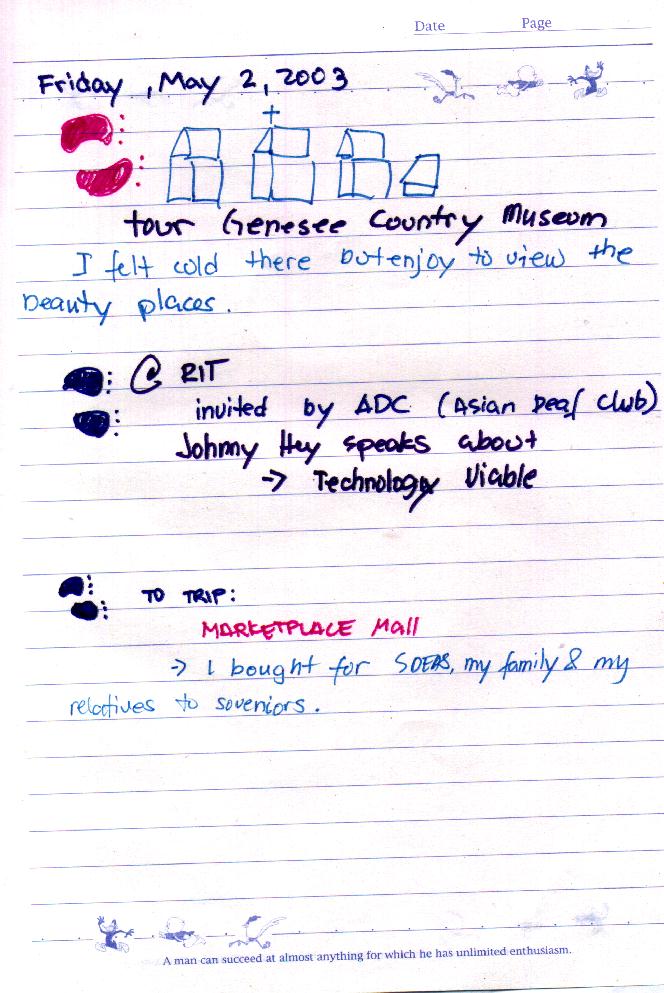 Date Page
Friday, May 2, 2003
tour Genesee Country Museum
I felt cold there but enjoy to view the
beauty places.
@ RIT
invited by ADC (Asian Deaf Club)
Johnny Hey speaks about
-> Technology Viable
TO TRIP:
MARKETPLACE Mall
-> I bought for SDEAS, my family & my
relatives to soveniors.
A man can succeed at almost anything for which he has unlimited enthusiasm.